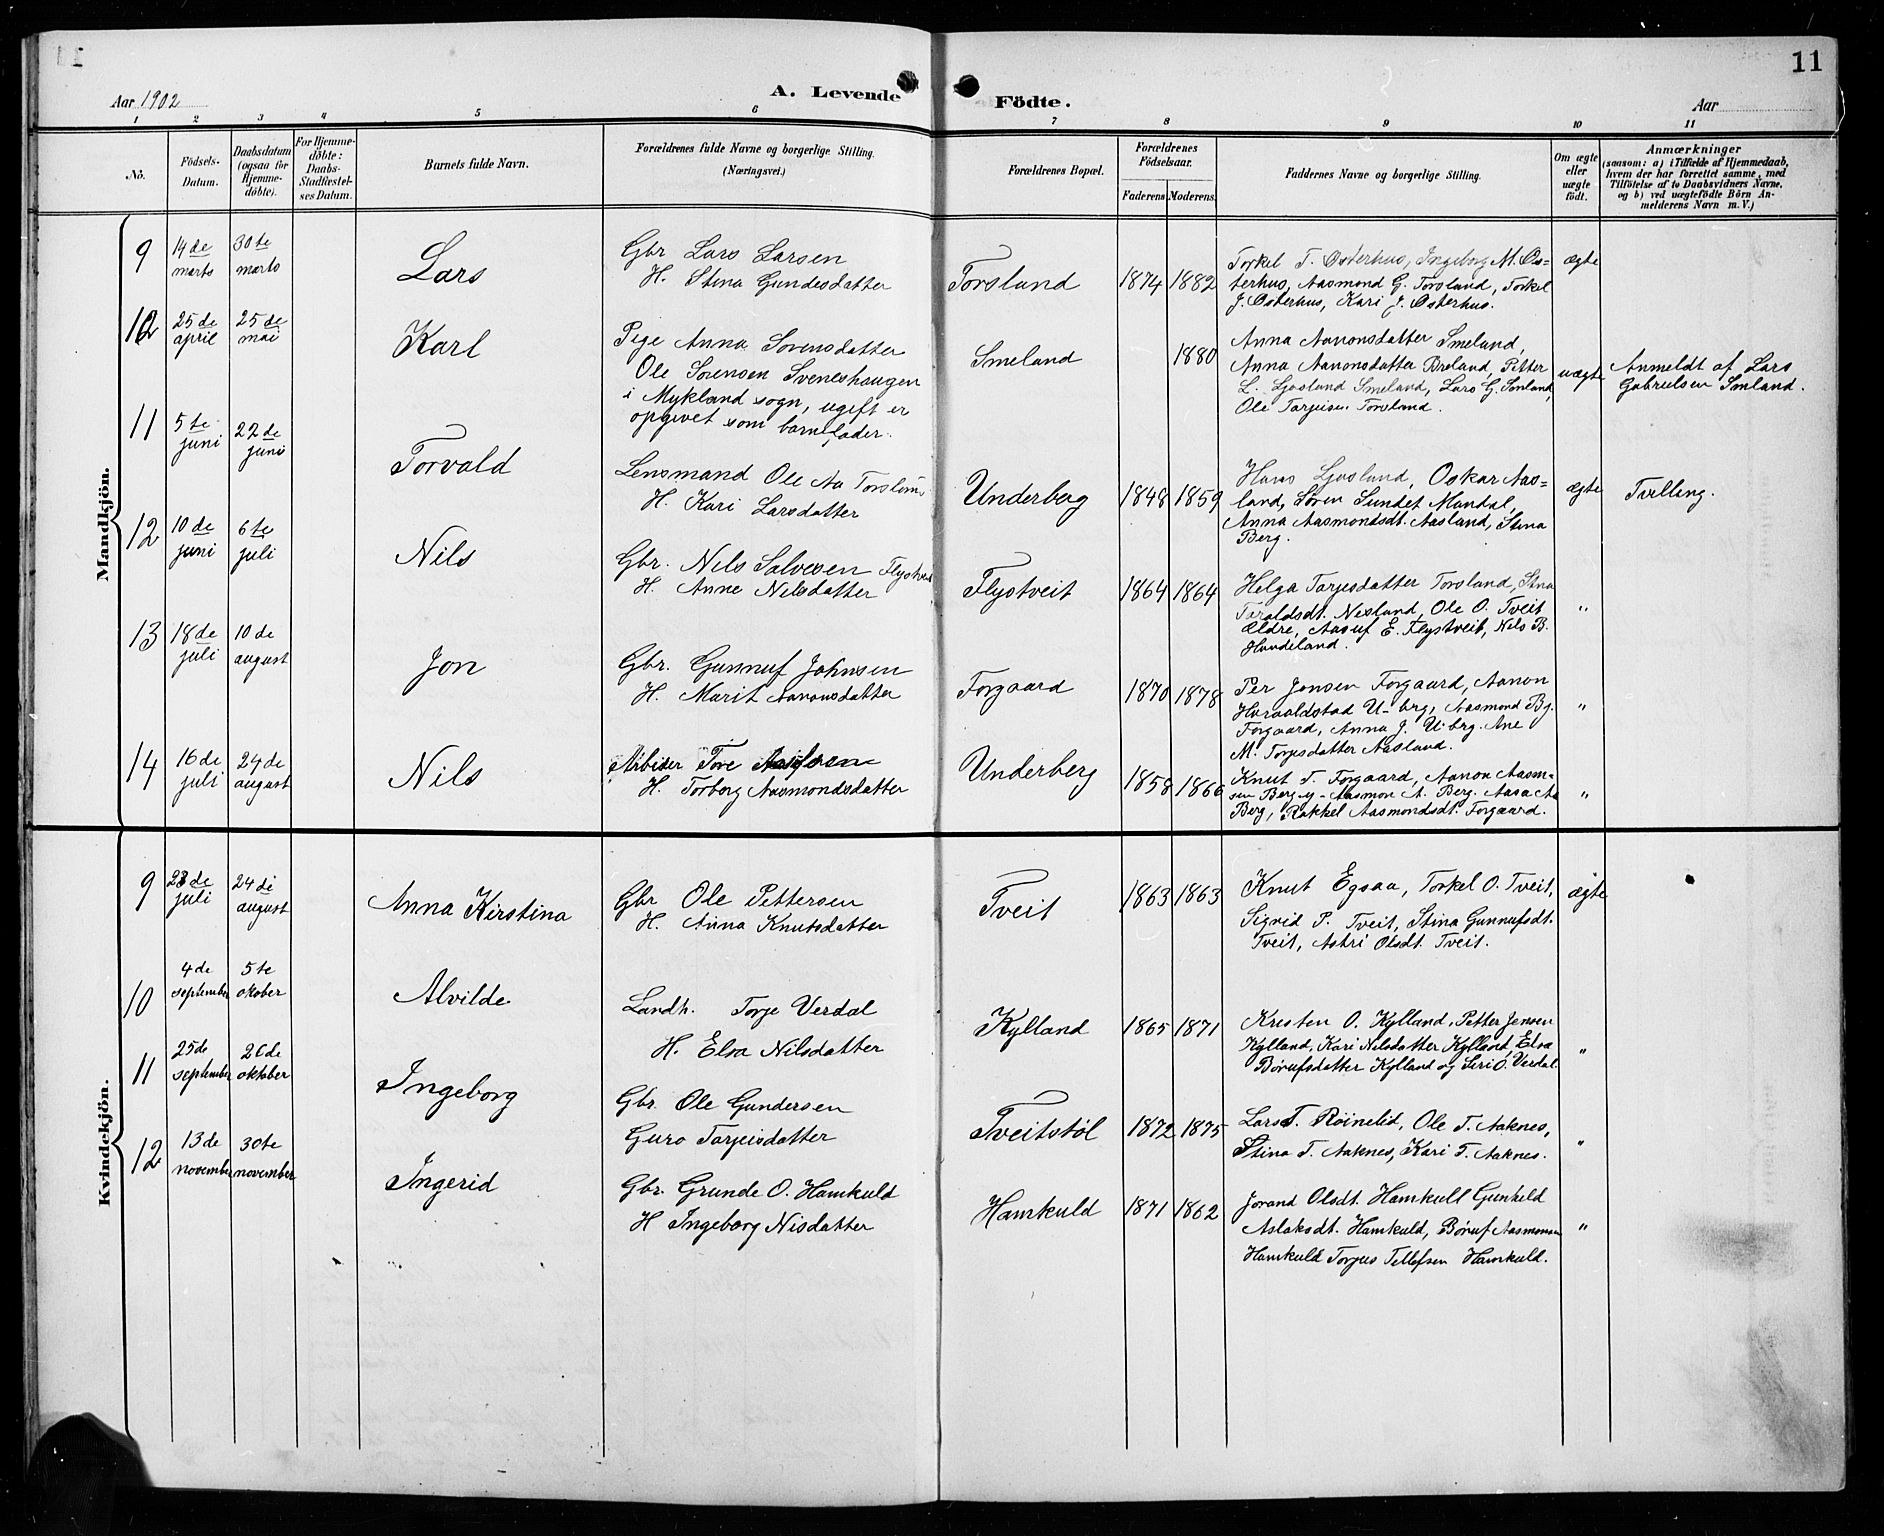 11
Aar 1902
A. Levende
Födte.
Aar
1 2 3 4 5 6 7 8 9 10 11
No.
Födsels-
Datum.
Daabsdatum
(ogsaa for
Hjemme-
döbte).
For Hjemme-
döbte:
Daabs-
Stadfæstel-
ses Datum.
Barnets fulde Navn.
Forældrenes fulde Navne og borgerlige Stilling.
(Næringsvei.)
Forældrenes Bopæl.
Forældrenes
Födselsaar.
Faderens Moderens.
Faddernes Navne og borgerlige Stilling.
Om ægte
eller
uægte
födt.
Anmærkninger
(saasom: a) i Tilfælde af Hjemmedaab,
hvem der har forrettet samme, med
Tilföielse af to Daabsvidners Navne,
og b) ved uægtefödte Börn An-
melderens Navn m. V.)
Mandkjön.
9
14de
marts
30te
marts
Lars
Gbr Lars Larsen
H. Stina Gundesdatter
Torsland
1874 1882
Torkel T. Østerhus, Ingeborg M. Øs-
terhus, Aasmond G. Torsland, Torkel
J. Østerhus, Kari J. Østerhus.
ægte
10
25de
april
25de
mai
Karl
Pige Anna Sørensdatter
Ole Sørensen Sveneshaugen
i Mykland sogn, ugift er
opgivet som barnefader.
Smeland
1880
Anna Aanonsdatter Smeland,
Anna Aanonsdatter Breland, Petter
L. Ljosland Smeland, Lars G. Smland,
Ole Tarjeisen Torsland.
uægte
Anmeldt af Lars
Gabrielsen Smland.
11
5te
juni
22de
juni
Torvald
Lensmand Ole Aa Torsland
H. Kari Larsdatter
Underberg
1848 1859
Hans Ljosland, Oskar Aas-
land, Søren Sundet Mandal,
Anna Aasmondsdt. Aasland, Stina
Berg.
ægte
Tvilling.
12
10de
juni
6te
juli
Nils
Gbr. Nils Salvesen Flystveit
H. Anne Nilsdatter
Flystveit
1864 1864
Helga Tarjesdatter Torsland, Stna
Taraldsdt. Nesland, Ole O. Tveit
Ældre, Aasuf E. Flystveit, Nils B.
Hundeland.
"
13
18de
juli
10de
august
Jon
Gbr. Gunnuf Johnsen
H. Marit Aanonsdatter
Forgaard
1870 1878
Per Jensen Forgaard, Aanon
Haraaldstad U-brg, Aasmond Bj.
Forgaard, Anna J. U-brg. Ane
M. Torjesdatter Aasland.
"
14
16de
juli
24de
august
Nils
Arbeider Tore
H. Torborg Aasmondsdatter
Underberg
1858 1866
Knut T. Forgaard, Aanon Aasm-
sen Berg y- Aasmon A. Berg. Aasa Aa
Berg, Rakkel Aasmondsdt. Forgaard.
"
Kvindekjön.
9
23de
juli
24de
august
Anna Kirstina
Gbr Ole Pettersen
H. Anna Knutsdatter
Tveit
1863 1863
Knut Egsaa, Torkel O. Tveit,
Sigrid P. Tveit, Stina Gunnufsdt.
Tveit, Astri Olsdt. Tveit.
ægte
10
4de
september
5te
oktober
Alvilde
Landh. Torje Verdal
H. Elsa Nilsdatter
Kylland
1865 1871
Kresten O. Kylland, Petter Jensen
Kylland, Kari Nilsdatter Kylland, Elsa
Børufsdatter Kylland og Siri O. Verdal.
"
11
25de
september
26de
oktober
Ingeborg
Gbr. Ole Gundersen
Guro Tarjeisdatter
Tveitstøl
1872 1875
Lars T. Røinelid, Ole T. Aaknes,
Stina T. Aaknes, Kari T. Aaknes.
"
12
13de
november
30te
november
Ingerid
Gbr. Grunde O. Hamkuld
H Ingeborg Nisdatter
Hamkuld
1871 1862
Jorand Olsdt. Hamkull Gunheld
Aslaksdt. Hamkuld, Børuf Aasmonsen
Hamkuld Torjus Tellefsen Hamkuld.
"